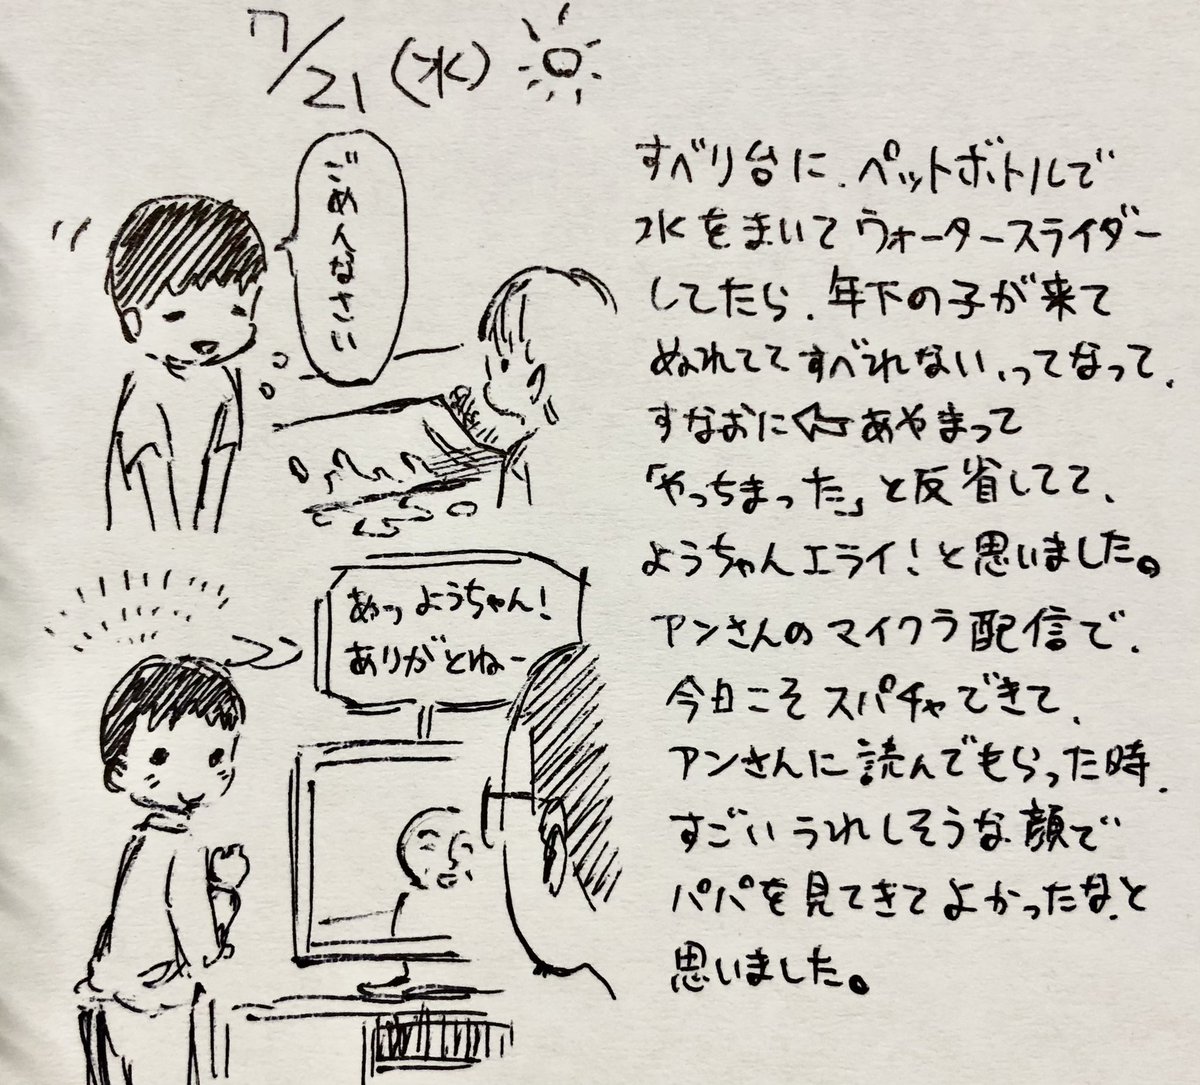 7/21(水)
ごめんなさい
すべり台に、ペットボトルで
水をまいてウォータースライダー
してたら、年下の子が来て
ぬれててすべれない、ってなって、
すなおに あやまって
「やっちまった」と反省してて、
ようちゃんエライ!と思いました。
あっ ようちゃん!
ありがとねー
アンさんのマイクラ配信で、
今日こそスパチャできて、
アンさんに読んでもらった時、
すごいうれしそうな顔で
パパを見てきてよかったな、と
思いました。